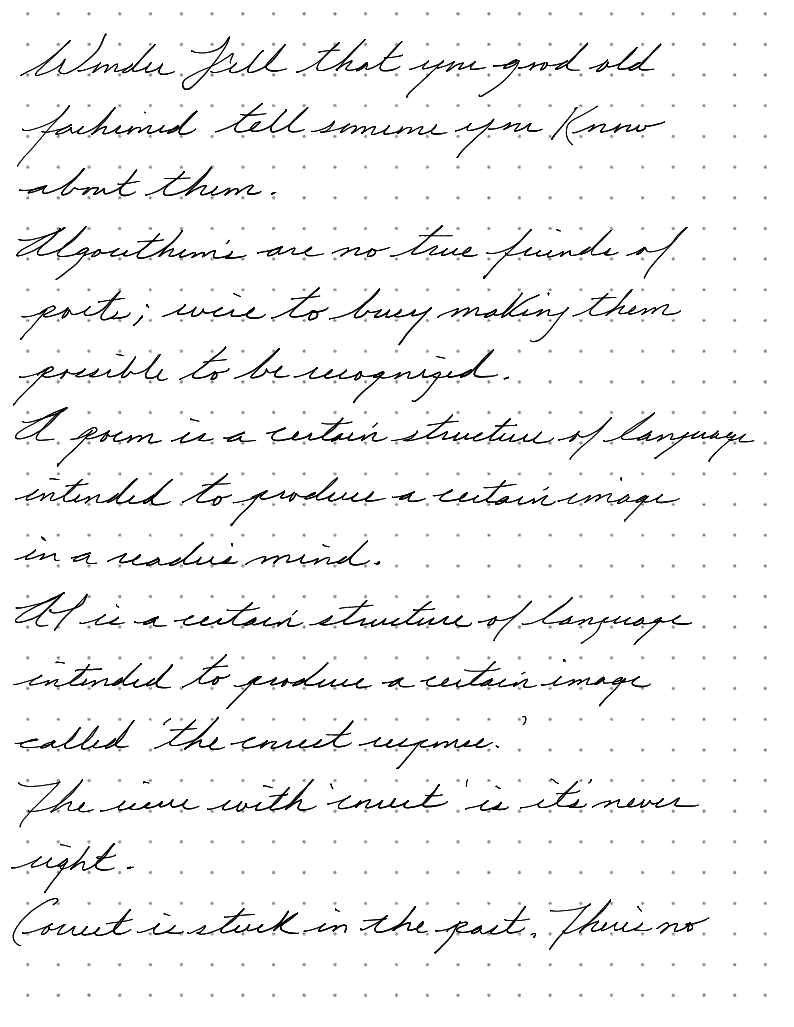 Wonder Full that your good old
fashioned tell someone you Know
about them.
Algorithem's are no true friends of
poets; we're to busy making them
possible to be recognized.
A poem is a certain structure of language
intended to produce a certain image
in a reader's mind.
AI is a certain structure of language
intended to produce a certain image
called 'the correct response.'
The issue with 'correct' is it's never
right.
Correct is stuck in the past. There's no